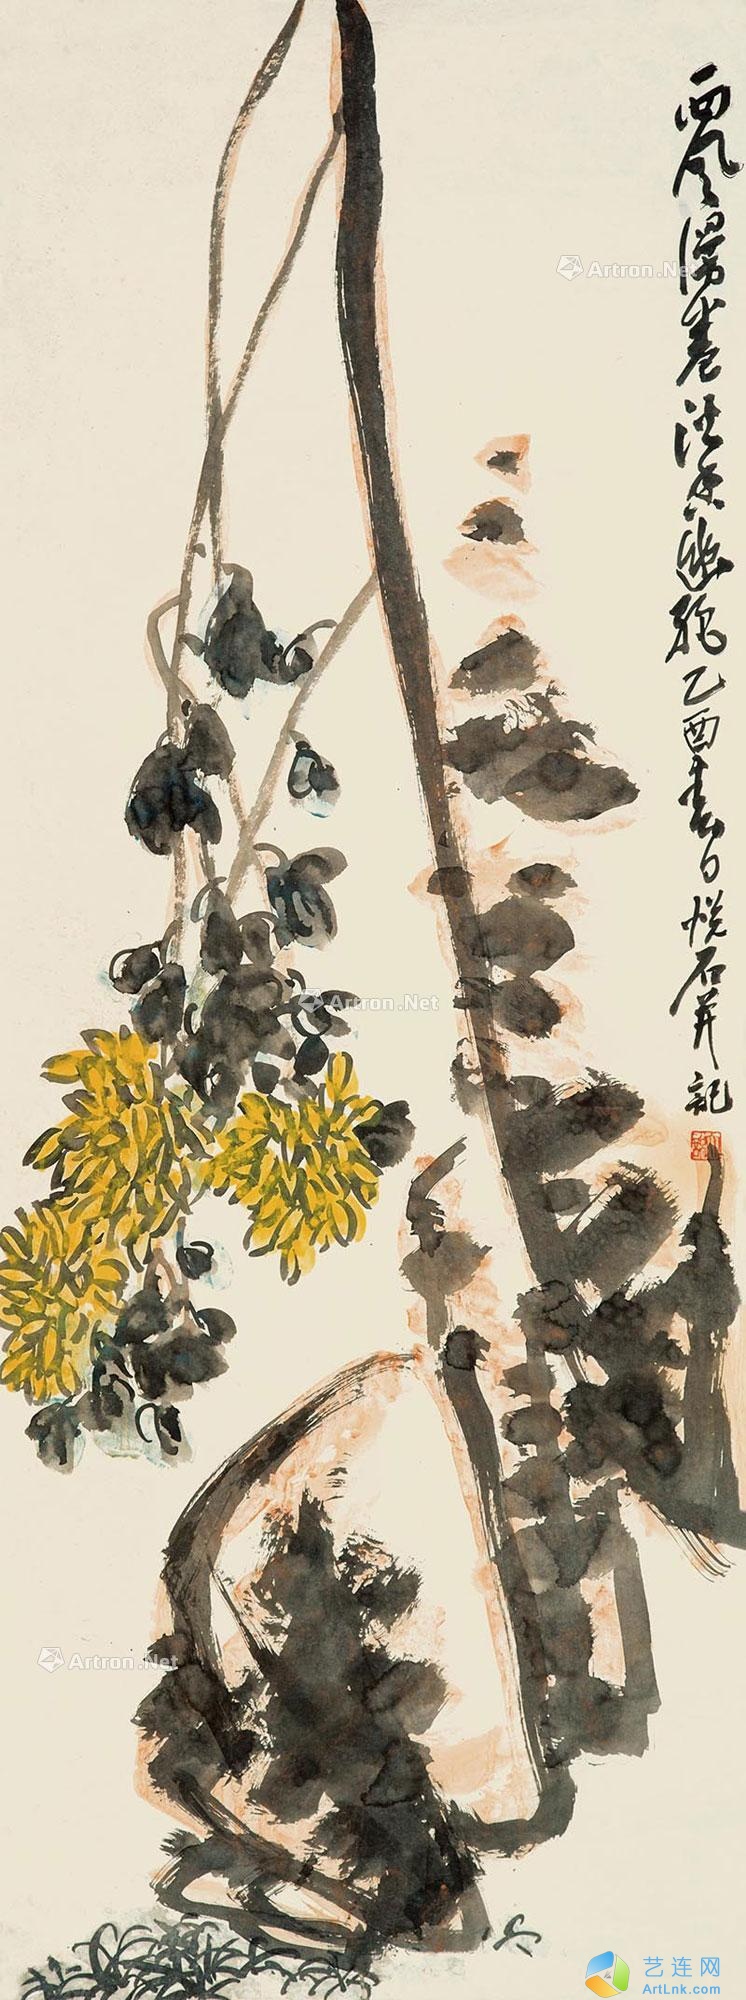 西风漫卷
乙酉春日悦石并记
Artron.Net
Artron.Net
Artron.Net
艺连网
ArtLnk.com